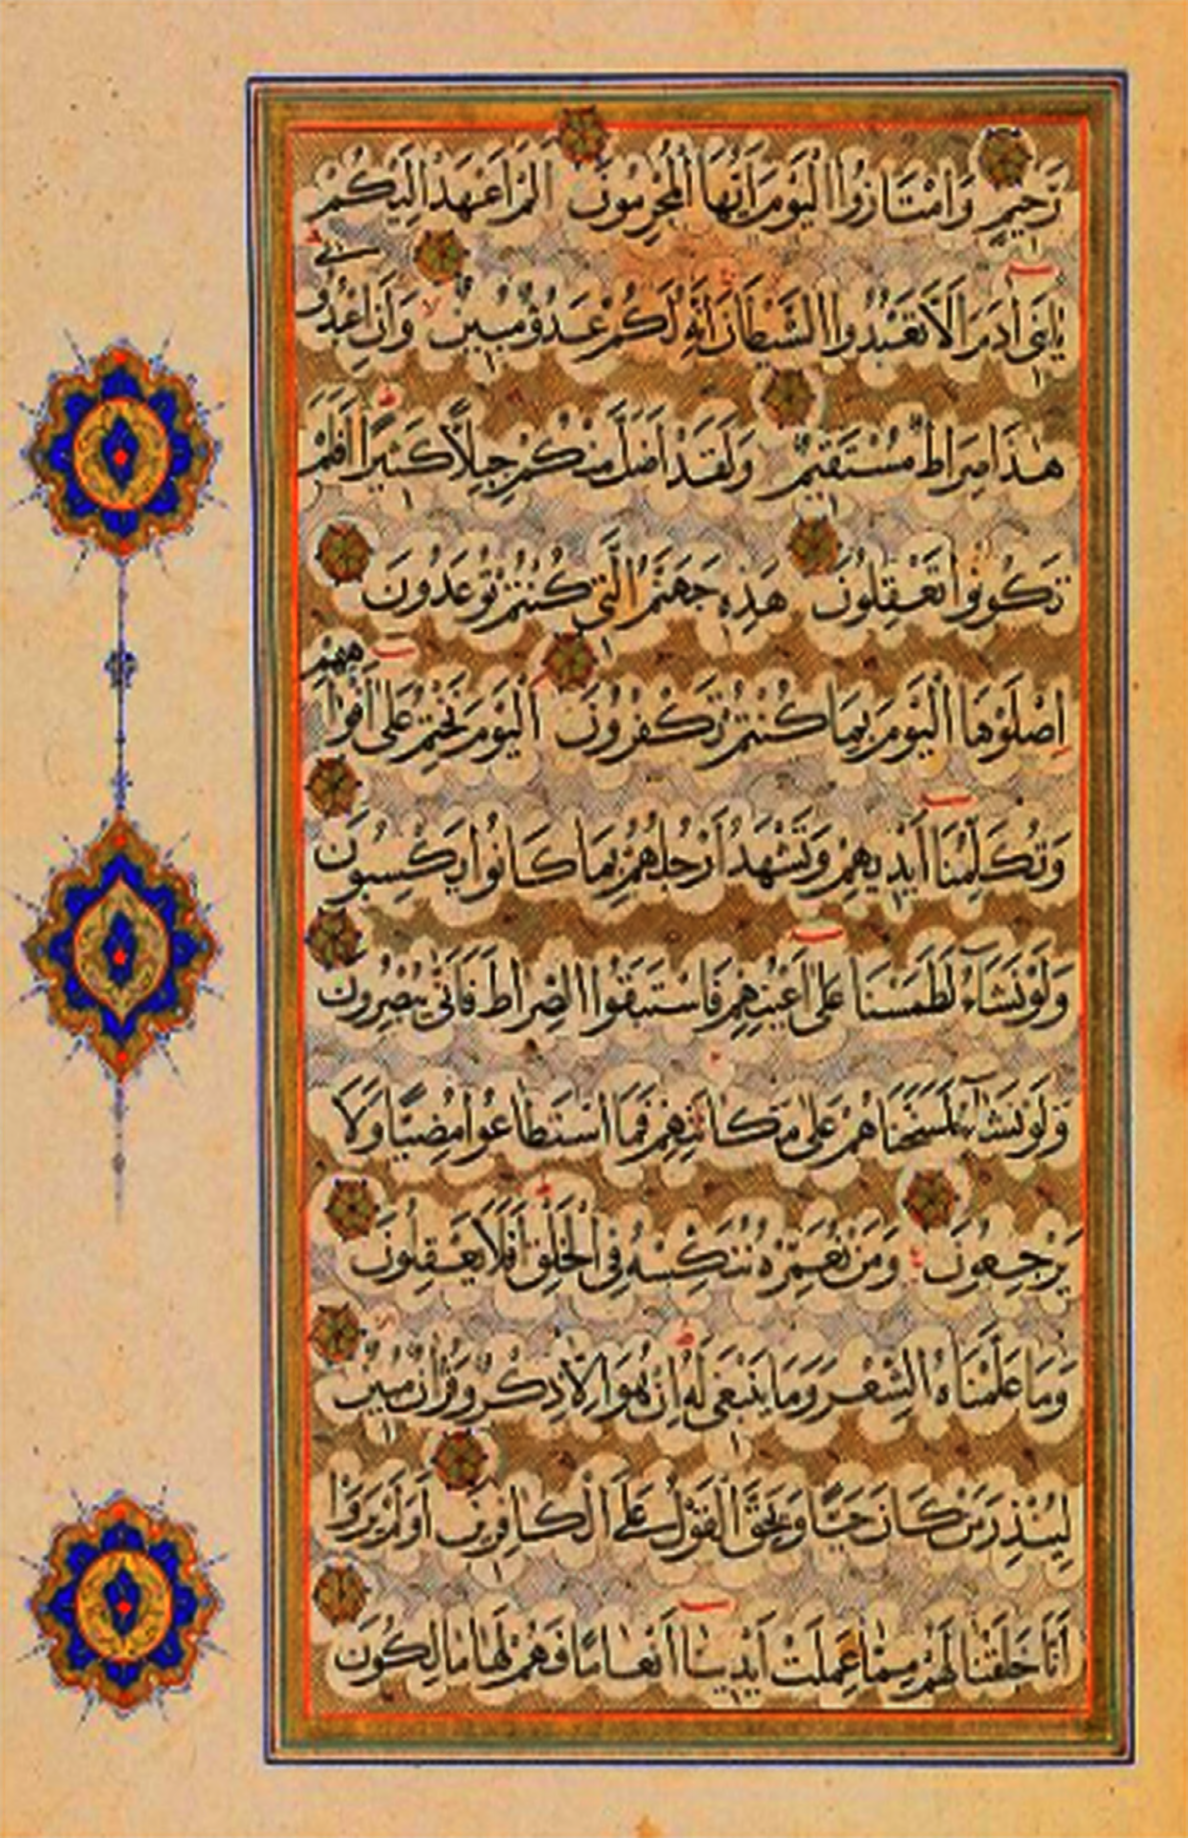 رَحِيمٍ وَامْتَازُوا الْيَوْمَ اَيُّهَا الْمُجْرِمُونَ اَلَمْ اَعْهَدْ اِلَيْكُمْ
يَابَنِى اٰدَمَ اَلَّا تَعْبُدُوا الشَّيْطَانَ اِنَّهُ لَكُمْ عَدُوٌّ مُبِينٌ وَاَنِ اعْبُدُونِى
هٰذَا صِرَاطٌ مُسْتَقِيمٌ وَلَقَدْ اَضَلَّ مِنْكُمْ جِبِلًّا كَثِيرًا اَفَلَمْ
تَكُونُوا تَعْقِلُونَ هٰذِهِ جَهَنَّمُ الَّتِى كُنْتُمْ تُوعَدُونَ
اِصْلَوْهَا الْيَوْمَ بِمَا كُنْتُمْ تَكْفُرُونَ اَلْيَوْمَ نَخْتِمُ عَلٰى اَفْوَاهِهِمْ
وَتُكَلِّمُنَا اَيْدِيهِمْ وَتَشْهَدُ اَرْجُلُهُمْ بِمَا كَانُوا يَكْسِبُونَ
وَلَوْ نَشَاءُ لَطَمَسْنَا عَلٰى اَعْيُنِهِمْ فَاسْتَبَقُوا الصِّرَاطَ فَاَنّٰى يُبْصِرُونَ
وَلَوْ نَشَاءُ لَمَسَخْنَاهُمْ عَلٰى مَكَانَتِهِمْ فَمَا اسْتَطَاعُوا مُضِيًّا وَلَا
يَرْجِعُونَ وَمَنْ نُعَمِّرْهُ نُنَكِّسْهُ فِى الْخَلْقِ اَفَلَا يَعْقِلُونَ
وَمَا عَلَّمْنَاهُ الشِّعْرَ وَمَا يَنْبَغِى لَهُ اِنْ هُوَ اِلَّا ذِكْرٌ وَقُرْاٰنٌ مُبِينٌ
لِيُنْذِرَ مَنْ كَانَ حَيًّا وَيَحِقَّ الْقَوْلُ عَلَى الْكَافِرِينَ اَوَلَمْ يَرَوْا
اَنَّا خَلَقْنَا لَهُمْ مِمَّا عَمِلَتْ اَيْدِينَا اَنْعَامًا فَهُمْ لَهَا مَالِكُونَ